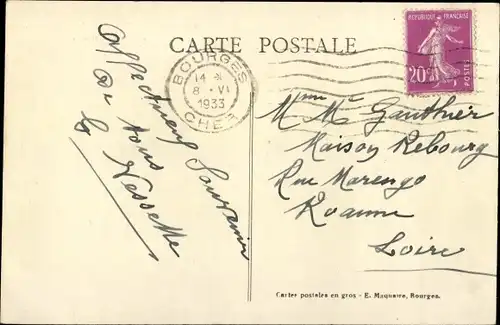 CARTE POSTALE
RÉPUBLIQUE FRANÇAISE
20c
POSTES
BOURGES
14 H
8 - VI
1933
CHER
Affectueux Souvenir
De tous
Mme Mr Gauthier
Maison Rebourg
Rue Marengo
Roanne
Loire
Cartes postales en gros - E. Maquaire, Bourges.